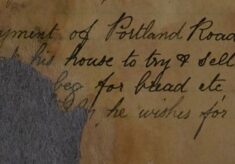 yment of Portland Road
his house to try & sell
beg for bread etc
he wishes for